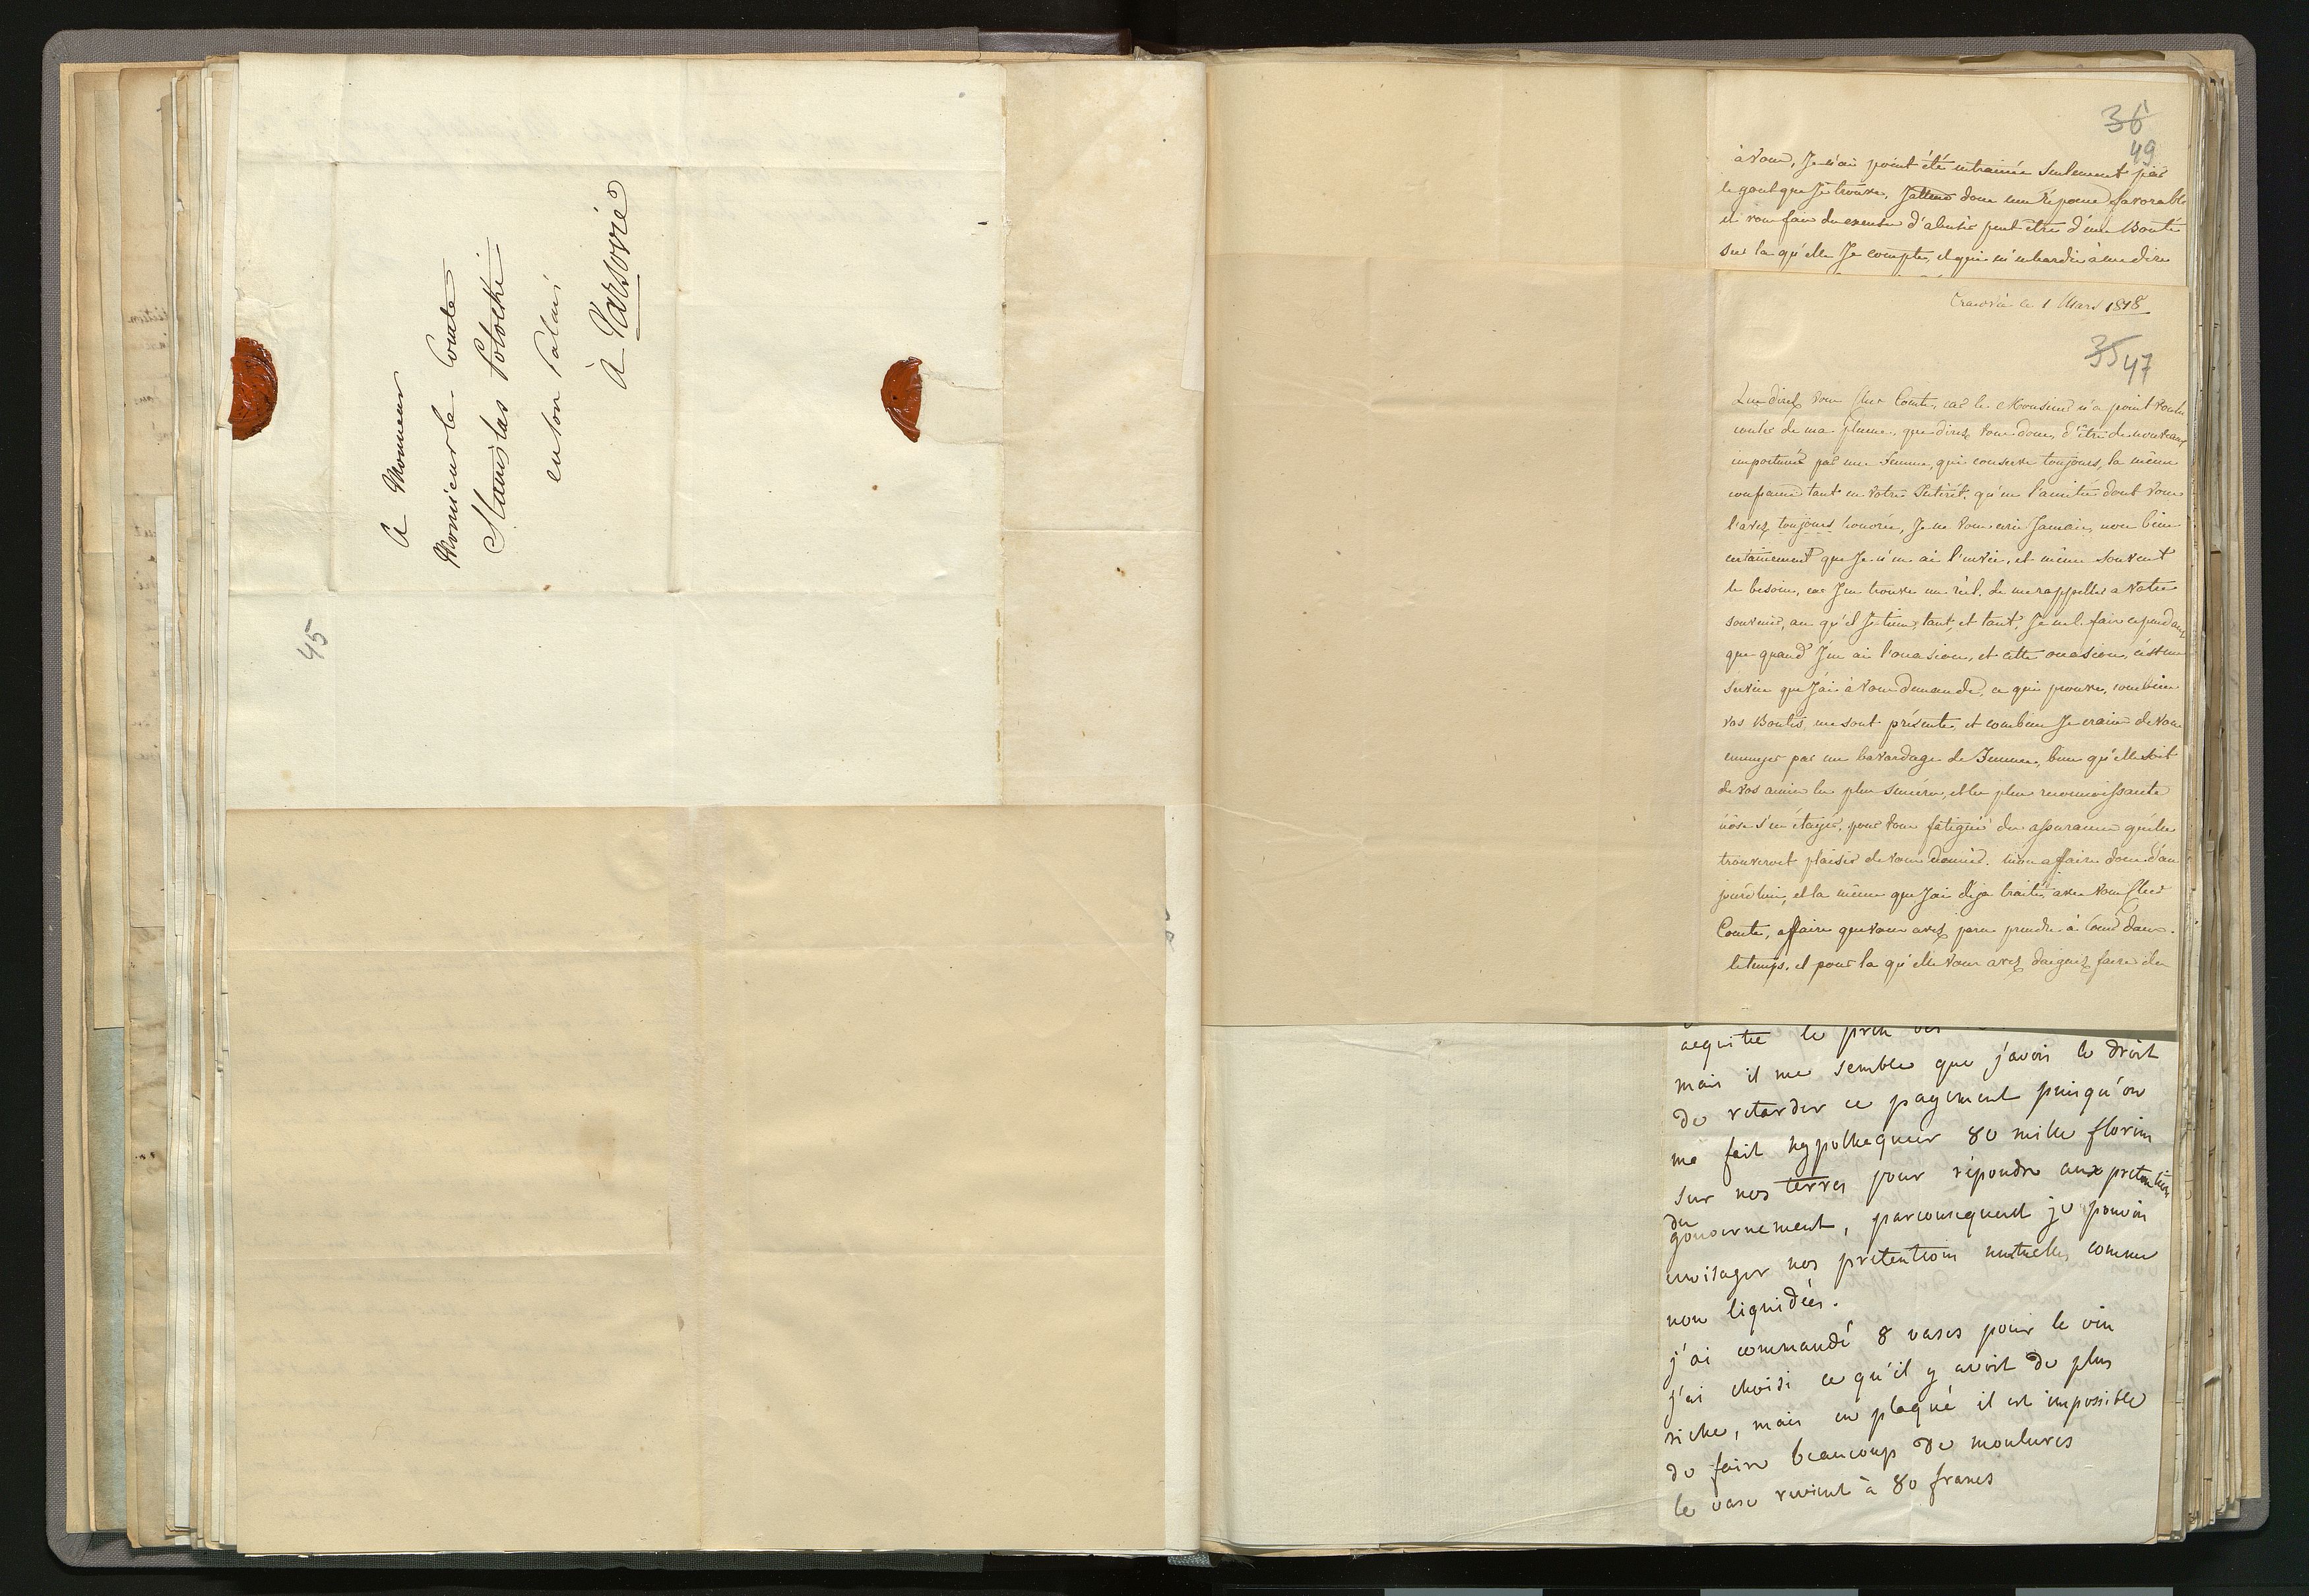 A Monsieur
Monsieur le Comte
Stanislas Potocki
en son Palais
à Varsovie
45
36
49
à vous, Je n'ai point été entrainée seulement par
le gout que J'e trouve, J'attens donc une réponse favorable
et vous fais des excuses d'abuser peut être d'une Bonté
sur la qu'elle Je compte, et qui m'enhardie à me dire
Cracovie ce 1 Mars 1818
35 47
Que direz vous Cher Comte, car le Monsieur n'a point voulu
couler de ma plume, que direz vous donc, d'être de nouveau
importuné par une femme, qui conserve toujours, la même
confiance tant en votre Intérêt, qu'en l'amitié dont vous
l'avez toujours honorée, Je ne vous écris Jamais, non bien
certainement que Je n'en ai l'envie, et même souvent
le besoin, car J'en trouve un réel, de me rappeller a votre
souvenir, au qu'el Je tiens, tant, et tant, Je ne le fais cependant
que quand J'en ai l'occasion, et cette occasion, c'est un
service que J'ai à vous demander, ce qui prouve, combien
vos Bontés me sont présentes, et combien Je crains de vous
ennuyer par un bavardage de Femme, bien qu'elle soit
de vos amies la plus sincère, et la plus reconnoissante
n'ose s'en étayer, pour vous fatiguer des assurances qu'elle
trouveroit plaisir de vous donner. mon affaire donc d'au
jourd'hui, est la même que J'ai déja traitée avec vous Cher
Comte, affaire que vous avez paru prendre à Coeur dans
le temps, et pour la qu'elle vous avez daignez faire des
acquitté le prix des
mais il me semble que j'avois le droit
de retarder ce payement puisqu'on
me fait hypothequer 80 mille florins
sur nos terres pour répondre aux pretentions
du
gouvernement, par consequent je pouvois
envisager nos pretentions mutuelles comme
non liquidées.
j'ai commandé 8 vases pour le vin
j'ai choisi ce qu'il y avoit de plus
riche, mais en plaqué il est impossible
de faire beaucoup de moulures
le vase revient à 80 francs